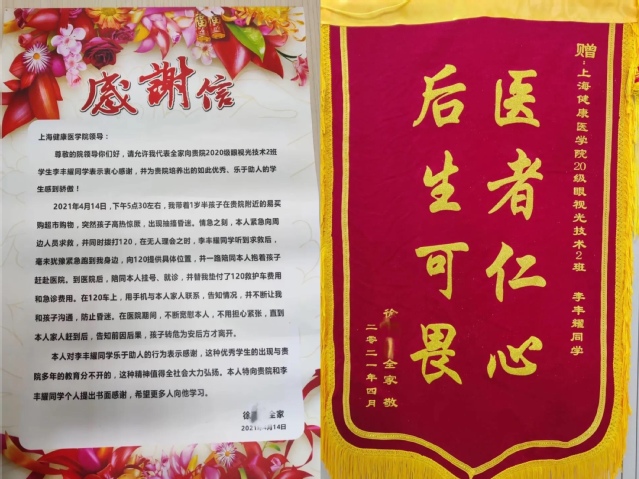 感謝信
上海健康医学院领导：
尊敬的院领导你们好，请允许我代表全家向贵院2020级眼视光技术2班
学生李丰耀同学表示衷心感谢，并为贵院培养出的如此优秀、乐于助人的学
生感到骄傲！
2021年4月14日，下午5点30左右，我带着1岁半孩子在贵院附近的易买
购超市购物，突然孩子高热惊厥，出现抽搐昏迷。情急之刻，本人紧急向周
边人员求救，并同时拨打120，在无人理会之时，李丰耀同学听到求救后，
毫未犹豫紧急跑到我身边，向120提供具体位置，并一路陪同本人抱着孩子
赶赴医院。到医院后，陪同本人挂号、就诊，并替我垫付了120救护车费用
和急诊费用。在120车上，用手机与本人家人联系，告知情况，并不断让我
和孩子沟通，防止昏迷。在医院期间，不断宽慰本人，不用担心紧张，直到
本人家人赶到后，告知前因后果，孩子转危为安后方才离开。
本人对李丰耀同学乐于助人的行为表示感谢，这种优秀学生的出现与贵
院多年的教育分不开的，这种精神值得全社会大力弘扬。本人特向贵院和李
丰耀同学个人提出书面感谢，希望更多人向他学习。
徐 全家
2021年4月14日
赠：上海健康医学院20级眼视光技术2班 李丰耀同学
医者仁心
后生可畏
徐 全家敬
二零二一年四月